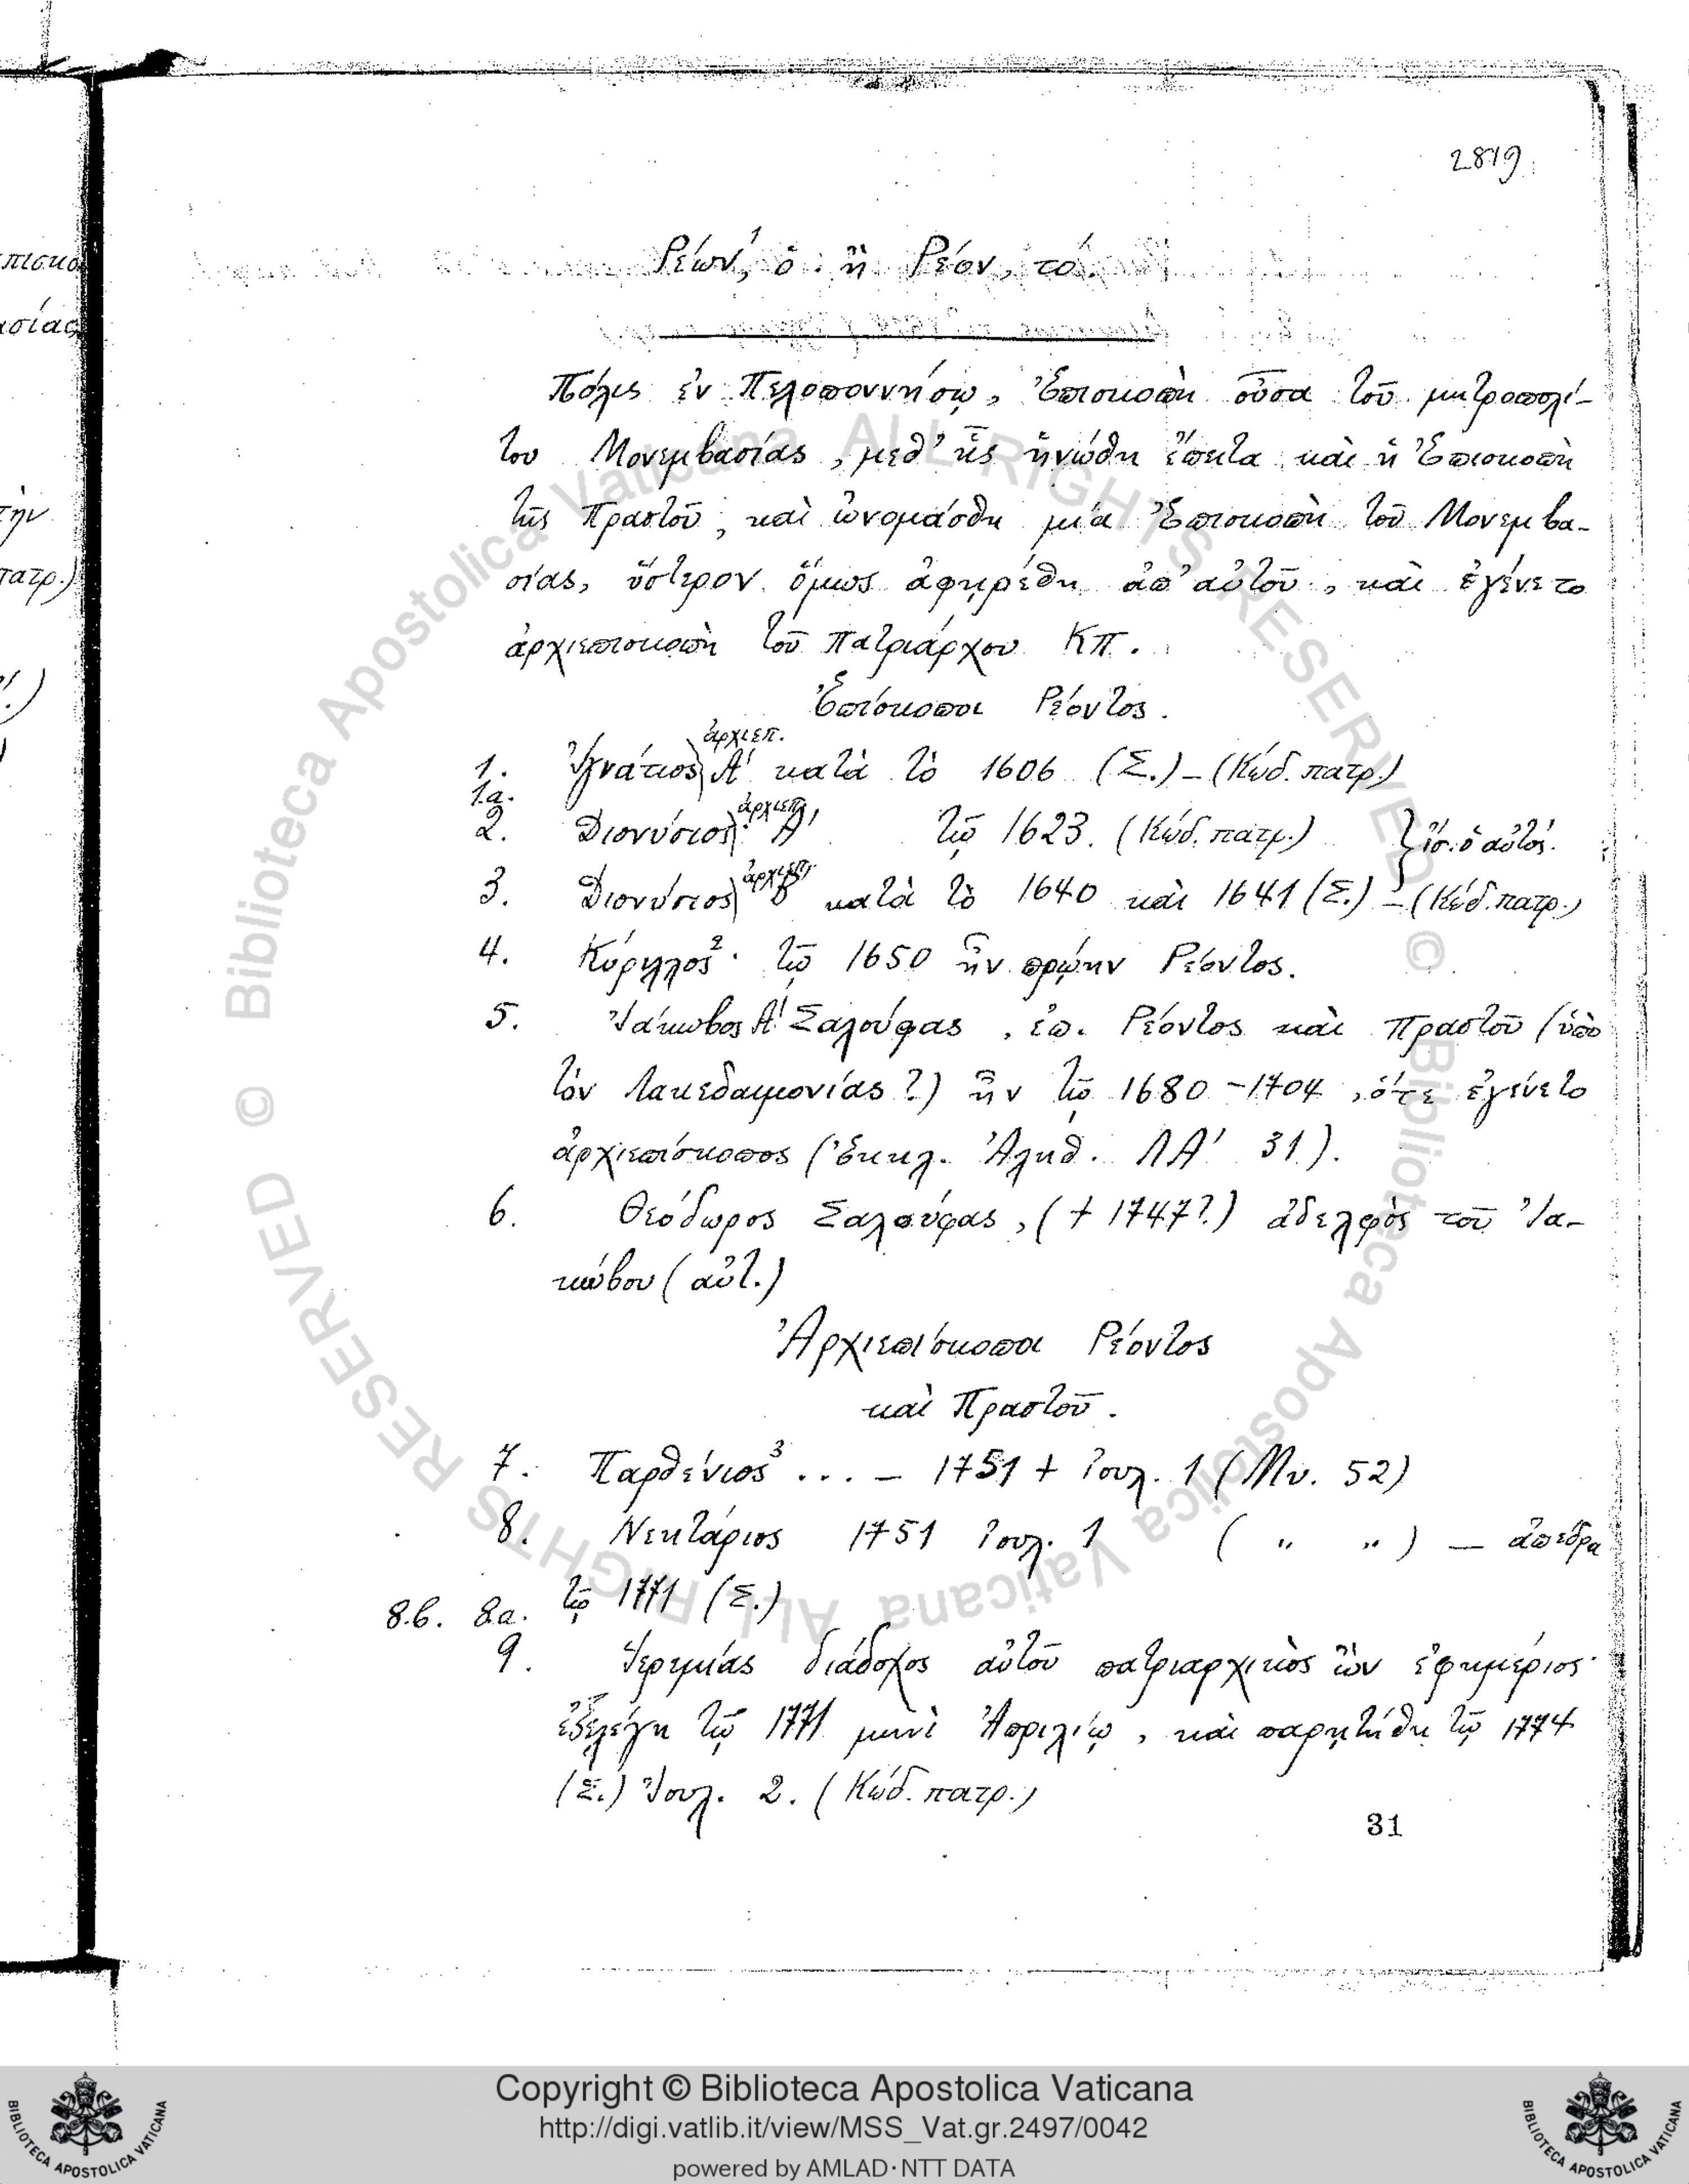 2819
πισκο
σίας
τὴν
πατρ.)
Ρέων¹, ὁ. ἢ Ρέον, τό.
Πόλις ἐν Πελοποννήσῳ, Ἐπισκοπὴ οὖσα τοῦ μητροπολί-
του Μονεμβασίας, μεθ' ἧς ἡνώθη ἔπειτα καὶ ἡ Ἐπισκοπὴ
τῆς Πραστοῦ, καὶ ὠνομάσθη μία Ἐπισκοπὴ τοῦ Μονεμβα-
σίας, ὕστερον ὅμως ἀφῃρέθη ἀπ' αὐτοῦ, καὶ ἐγένετο
ἀρχιεπισκοπὴ τοῦ Πατριάρχου ΚΠ.
Ἐπίσκοποι Ρέοντος.
ἀρχιεπ.
1. Ἰγνάτιος Α' κατὰ τὸ 1606 (Σ.) – (Κώδ. πατρ.)
1.a.
ἀρχιεπ.
2. Διονύσιος Α' τῷ 1623. (Κώδ. πατρ.) } ἴσ. ὁ αὐτός.
ἀρχιεπ.
3. Διονύσιος Β' κατὰ τὸ 1640 καὶ 1641 (Σ.) – (Κώδ. πατρ.)
4. Κύριλλος². τῷ 1650 ἦν πρῴην Ρέοντος.
5. Ἰάκωβος Α' Σαλούφας, ἐπ. Ρέοντος καὶ Πραστοῦ (ὑπὸ
τὸν Λακεδαιμονίας ?) ἦν τῷ 1680 – 1704, ὅτε ἐγένετο
ἀρχιεπίσκοπος (Ἐκκλ. Ἀληθ. ΛΑ' 31).
6. Θεόδωρος Σαλούφας, († 1747?) ἀδελφὸς τοῦ Ἰα-
κώβου (αὐτ.)
Ἀρχιεπίσκοποι Ρέοντος
καὶ Πραστοῦ.
7. Παρθένιος³ ... – 1751 † Ἰουλ. 1 (Μν. 52)
8. Νεκτάριος 1751 Ἰουλ. 1 ( " " ) – ἀπέδρα
τῷ 1771 (Σ.)
8.b. 8.a.
9. Ἱερεμίας διάδοχος αὐτοῦ πατριαρχικὸς ὢν ἐφημέριος.
ἐξελέγη τῷ 1771 μηνὶ Ἀπριλίῳ, καὶ παρῃτήθη τῷ 1774
(Σ.) Ἰουλ. 2. (Κώδ. πατρ.)
31
© Biblioteca Apostolica Vaticana ALL RIGHTS RESERVED © Biblioteca Apostolica Vaticana ALL RIGHTS RESERVED
BIBLIOTECA APOSTOLICA VATICANA
Copyright © Biblioteca Apostolica Vaticana
http://digi.vatlib.it/view/MSS_Vat.gr.2497/0042
powered by AMLAD·NTT DATA
BIBLIOTECA APOSTOLICA VATICANA